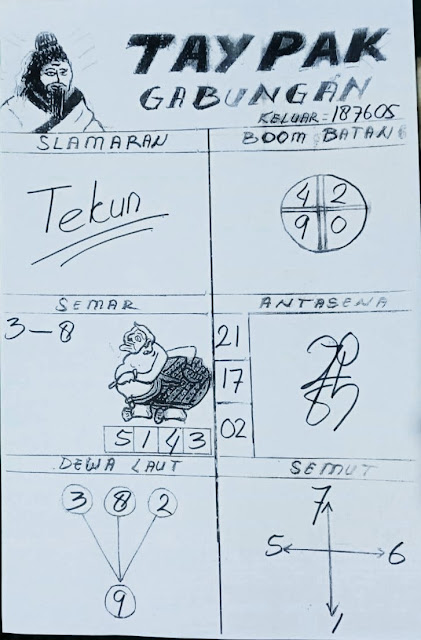 TAY PAK
GABUNGAN
KELUAR = 187605
SLAMARAN
BOOM BATANG
Tekun
4 2
9 0
SEMAR
ANTASENA
3-8
21
17
02
5 1 4 3
DEWA LAUT
SEMUT
3 8 2
9
7
5 6
1